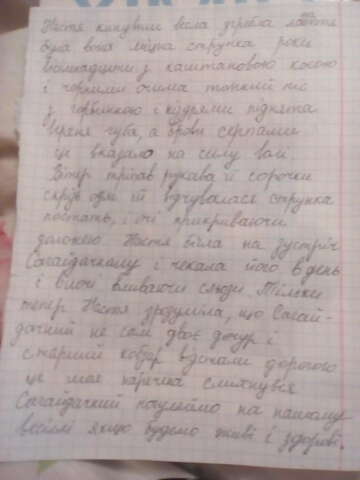 Настя кинувши весла згребла лаття
була вона міцна струнка роки
вісімнадцяти з каштановою косою
і чорними очима тонкий ніс
з горбинкою і ніздрями піднята
верхня губа, а брови серпами
це вказало на силу волі.
Вітер тріпав рукава її сорочки
скрізь одяг її відчувалася струнка
постать, і очі прикриваючи
долонею. Настя вісла на зустріч
Сагайдачному і чекала його вдень
і вночі вливаючи сльози. Тільки
тепер Настя зрозуміла, що Сагай-
дачний не сам двоє джур і
старший кобзар встали дорогою
це моя наречена смикнувся
Сагайдачний погуляймо на нашому
весіллі якщо будемо живі і здорові.